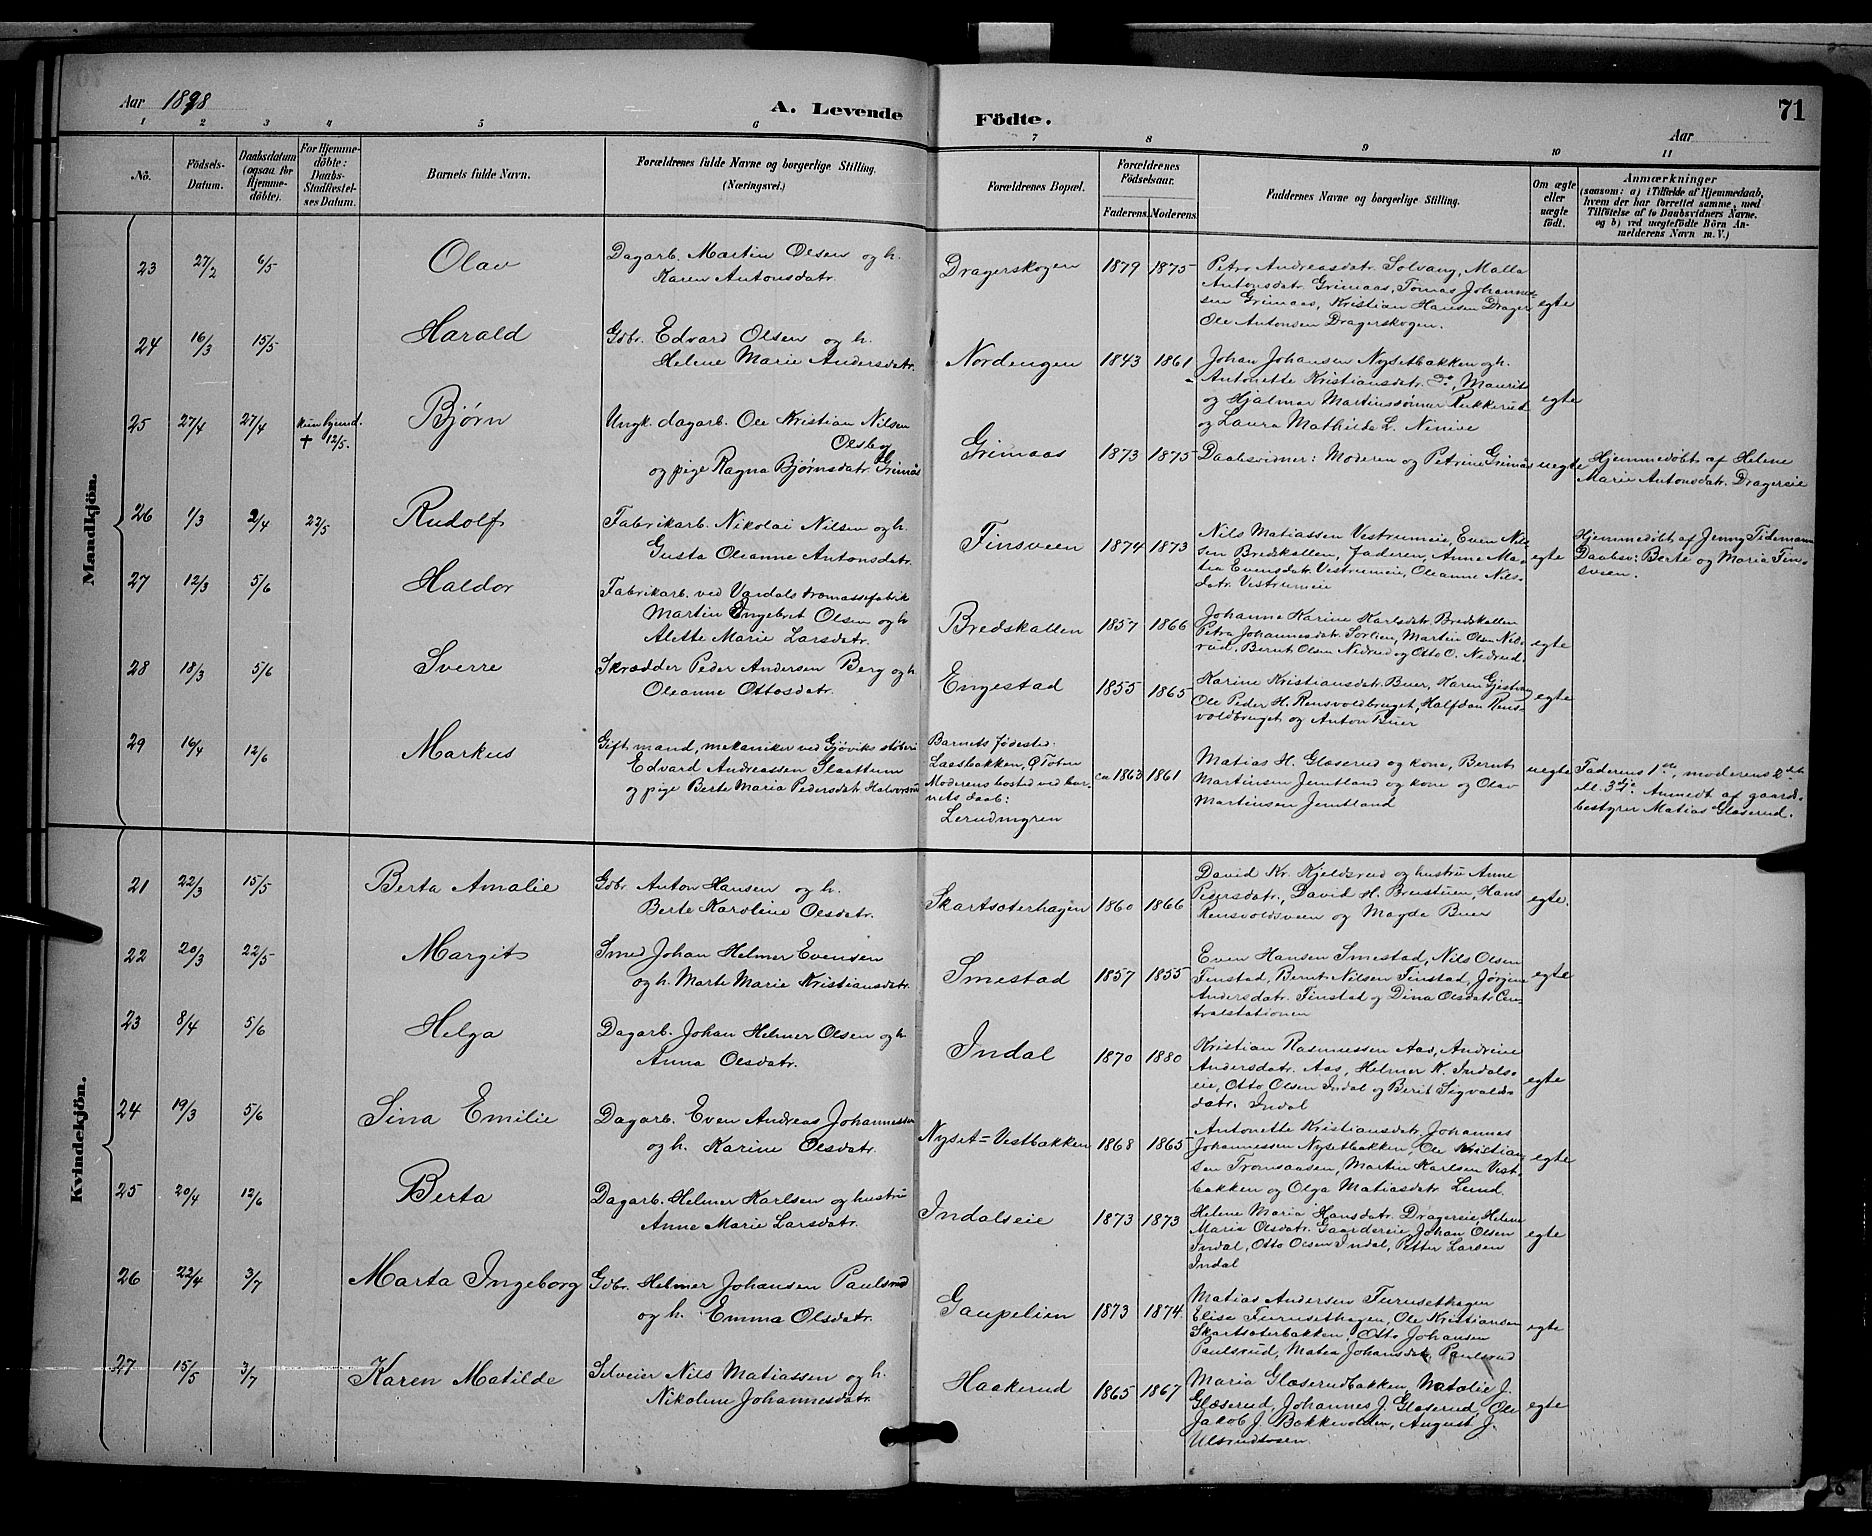 Aar 1898
A. Levende Födte.
71
Aar
1 2 3 4 5 6 7 8 9 10 11
No.
Födsels-Datum.
Daabsdatum (ogsaa for Hjemmedöbte).
For Hjemmedöbte: Daabs-Stadfæstelses Datum.
Barnets fulde Navn.
Forældrenes fulde Navne og borgerlige Stilling. (Næringsvei.)
Forældrenes Bopæl.
Forældrenes Födselsaar.
Faderens. Moderens.
Faddernes Navne og borgerlige Stilling.
Om ægte eller uægte födt.
Anmærkninger
(saasom: a) i Tilfælde af Hjemmedaab, hvem der har forrettet samme, med Tilföielse af to Daabsvidners Navne. og b) ved uægtefödte Börn Anmelderens Navn m. V.)
Mandkjön.
23 27/2 6/5 Olav
Dagarb. Martin Olsen og h.
Karen Antonsdatr.
Dragerskogen 1879 1875
Petra Andreasdatr. Solvang, Malla
Antonsdatr Grimaas, Tomas Johannes-
sen Grimaas, Kristian Hansen Drager
Ole Antonsen Dragerskogen.
egte
24 16/3 15/5 Harald
Gbr. Edvard Olsen og h.
Helene Marie Andersdatr.
Nordengen 1843 1861
Johan Johansen Nysetbakken og h.
Antonette Kristiansdatr. do, Maurits
og Hjalmar Martinssönner Rukkerud
og Laura Mathilde L. Ninive
egte
25 27/4 27/4 kun hjemd. † 12/5. Bjørn
Ungk. dagarb. Ole Kristian Nilsen
Olsby
og pige Ragna Bjørnsdatr. Grimås
Grimaas 1873 1875
Daabsvidner: Moderen og Petrine Grimås
uegte
Hjemmedöbt af Helene
Marie Antonsdatr. Dragereie
26 1/3 2/4 22/5 Rudolf
Fabrikarb. Nikolai Nilsen og h.
Gusta Oleanne Antonsdatr.
Finsveen 1874 1873
Nils Matiassen Vestrumeie, Even Nil-
sen Bredskallen, faderen, Anne Ma-
tea Evensdatr. Vestrumeie, Oleanne Nils-
datr. Vestrumeie
egte
Hjemmedöbt af Jenny Tidemann
Daabsv: Berte og Maria Fins-
sveen.
27 12/3 5/6 Haldor
Fabrikarb. ved Vardals træmassefabrik
Martin Engebret Olsen og h
Alette Marie Larsdatr.
Bredskallen 1857 1866
Johanne Karine Karlsdatr. Bredskallen
Petra Johannesdatr. Sorlien, Martin Olsen Ned-
rud, Bernt Olsen Nedrud og Otto O. Nedrud.
egte
28 18/3 5/6 Sverre
Skrædder Peder Andersen Berg og h.
Oleanne Ottosdatr.
Engestad 1855 1865
Karine Kristiansdatr. Buer, Karen Gjestvang
Ole Peder H. Rensvoldbruget, Halfdan Rens-
voldbruget og Anton Buer
egte
29 16/4 12/6 Markus
Gift mand, mekaniker ved Gjøviks støberi
Edvard Andreassen Slaattum
og pige Berte Maria Pedersdatr. Halvorsrud
Barnets fødested:
Laasbakken, Ø Toten
Moderens bosted ved bar-
nets daab:
Lerudmyren
ca 1863 1861
Matias H. Glæserud og kone, Bernt
Martinsen Jemtland og kone og Olav
Martinsen Jemtland
uegte
Faderens 1ste, moderens 2det
ell. 3die. Anmeldt af gaards-
bestyrer Matias Glæserud.
Kvindekjön.
21 22/3 15/5 Berta Amalie
Gbr. Anton Hansen og h.
Berte Karoline Olsdatr.
Skartsæterhagen 1860 1866
David Kr. Kjeldsrud og hustru Anne
Pedersdatr., David H. Breistuen, Hans
Rensvoldsveen og Magda Buer
egte.
22 20/3 22/5 Margit
Smed Johan Helmer Evensen
og h. Marte Marie Kristiansdatr.
Smestad 1857 1855
Even Hansen Smestad, Nils Olsen
Finstad, Bernt Nilsen Finstad, Jørgine
Andersdatr. Finstad og Dina Olsdatr. Cen-
tralstationen
egte
23 8/4 5/6 Helga
Dagarb. Johan Helmer Olsen og h.
Anna Olsdatr.
Indal 1870 1880
Kristian Rasmussen Aas, Andrine
Andersdatr. Aas, Helmer K. Indals-
eie, Otto Olsen Indal og Berit Sigvalds-
datr. Indal
egte
24 19/3 5/6 Sina Emilie
Dagarb. Even Andreas Johannessen
og h. Karine Olsdatr.
Nyset=Vestbakken 1868 1865
Antonette Kristiansdatr, Johannes
Johannessen Nysetbakken, Ole Kristian-
sen Tromsaasen, Martin Karlsen Vest-
bakken og Olga Matiasdatr. Lund.
egte
25 20/4 12/6 Berta
Dagarb. Helmer Karlsen og hustru
Anne Marie Larsdatr.
Indalseie 1873 1873
Helene Maria Hansdatr. Dragereie, Helene
Maria Olsdatr. Gaardereie, Johan Olsen
Indal, Otto Olsen Indal, Petter Larsen
Indal
egte
26 22/4 3/7 Marta Ingeborg
Gbr. Helmer Johansen Paulsrud
og h. Emma Olsdatr.
Gaupelien 1873 1874.
Matias Andersen Furusethagen
Elise Furusethagen, Ole Kristiansen
Skartsæterbakken, Otto Johansen
Paulsrud, Matea Johansdatr. Paulsrud
egte
27 15/5 3/7 Karen Matilde
Selveier Nils Matiassen og h.
Nikoline Johannesdatr.
Haakerud 1865 1867
Maria Glæserudbakken, Natalie J.
Glæserud, Johannes J. Glæserud, Ole
Jakob J. Bakkevolden, August J.
Ulsrudtosen.
egte